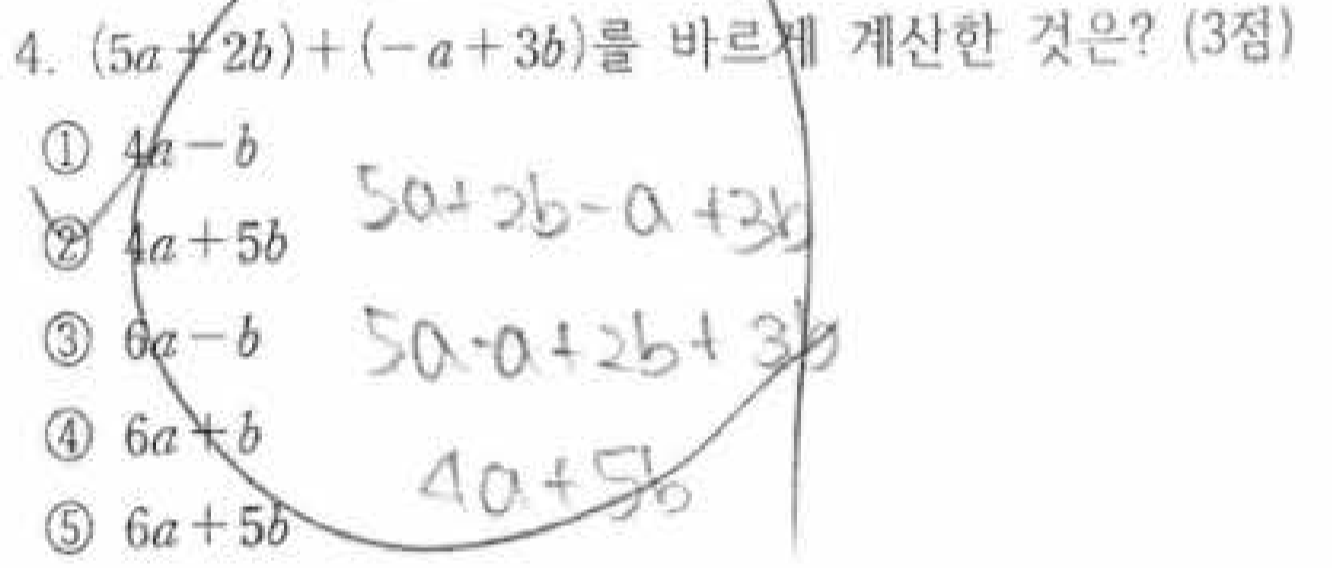 4. (5a+2b)+(-a+3b)를 바르게 계산한 것은? (3점)
① 4a-b
5a+2b-a+3b
② 4a+5b
③ 6a-b
5a-a+2b+3b
④ 6a+b
4a+5b
⑤ 6a+5b